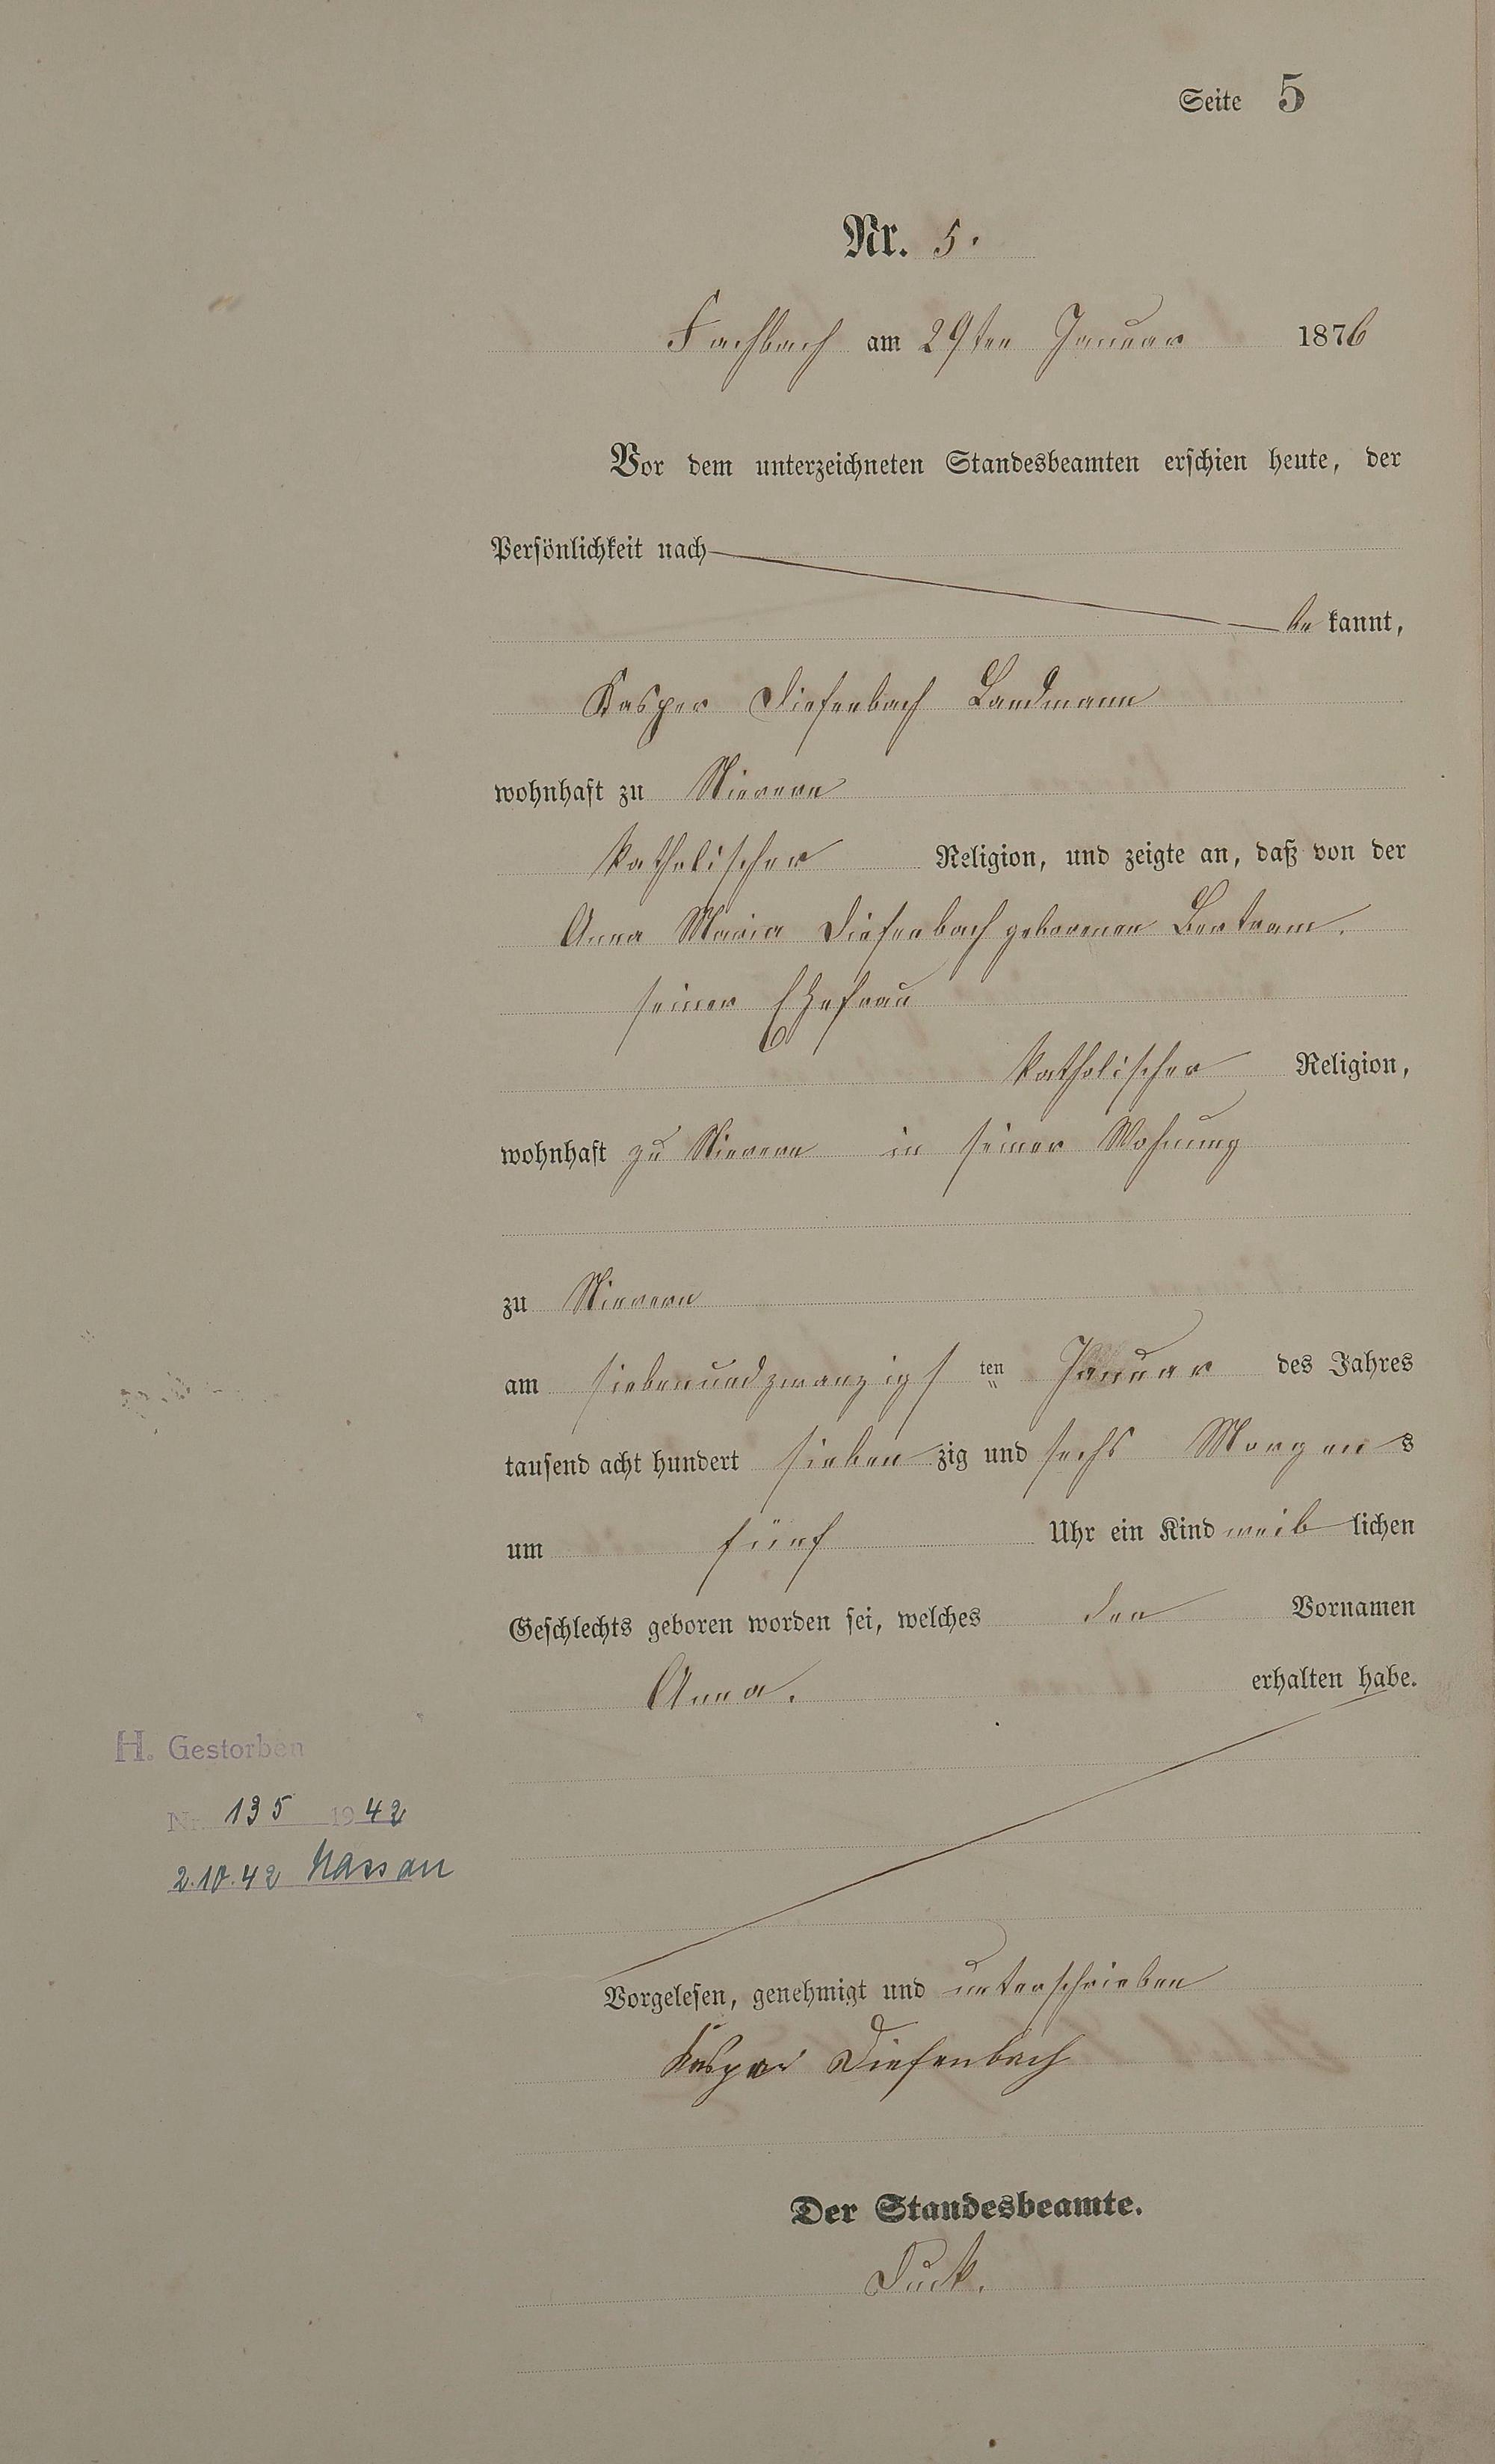 Seite 5
Nr. 5.
Fachbach am 29ten Januar 1876
Vor dem unterzeichneten Standesbeamten erschien heute, der
Persönlichkeit nach
be kannt,
Kasper Diefenbach Landmann
wohnhaft zu Nievern
katholischer Religion, und zeigte an, daß von der
Anna Maria Diefenbach geborenen Bertram.
seiner Ehefrau
katholischer Religion,
wohnhaft zu Nievern in seiner Wohnung
zu Nievern
am siebenundzwanzigs ten Januar des Jahres
tausend acht hundert sieben zig und sechs Morgen s
um fünf Uhr ein Kind weib lichen
Geschlechts geboren worden sei, welches den Vornamen
Anna. erhalten habe.
H. Gestorben
Nr. 135 1942
2.10.42 Nassau
Vorgelesen, genehmigt und unterschrieben
Kaspar Diefenbach
Der Standesbeamte.